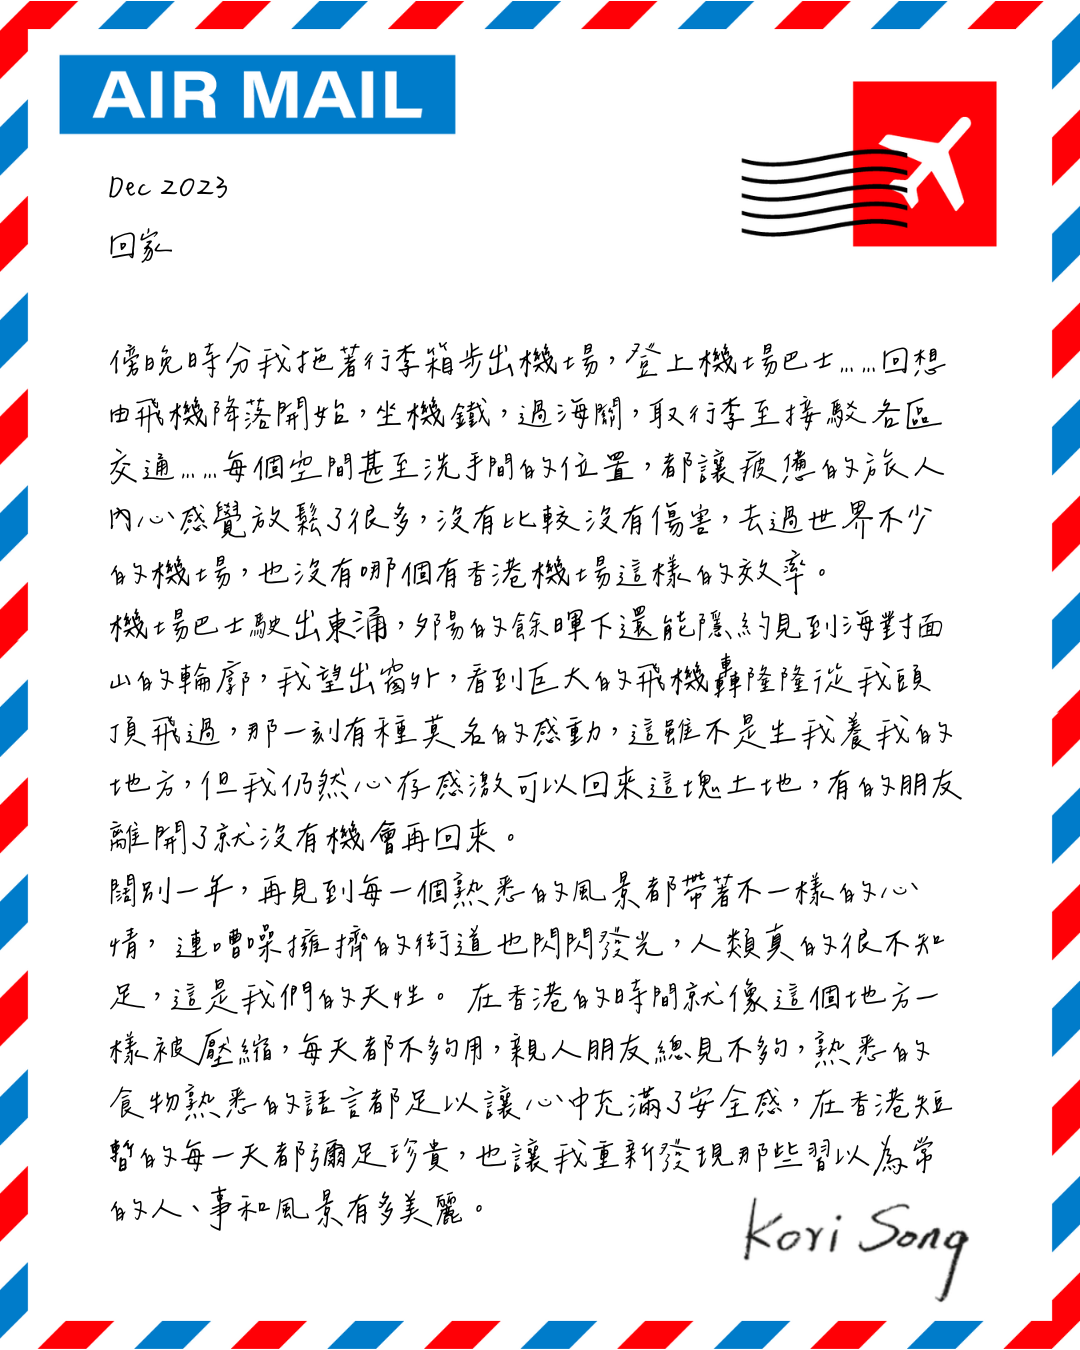 AIR MAIL
Dec 2023
回家
傍晚時分我拖著行李箱步出機場，登上機場巴士……回想
由飛機降落開始，坐機鐵，過海關，取行李至接駁各區
交通……每個空間甚至洗手間的位置，都讓疲憊的旅人
內心感覺放鬆了很多，沒有比較沒有傷害，去過世界不少
的機場，也沒有哪個有香港機場這樣的效率。
機場巴士駛出東涌，夕陽的餘暉下還能隱約見到海對面
山的輪廓，我望出窗外，看到巨大的飛機轟隆隆從我頭
頂飛過，那一刻有種莫名的感動，這雖不是生我養我的
地方，但我仍然心存感激可以回來這塊土地，有的朋友
離開了就沒有機會再回來。
闊別一年，再見到每一個熟悉的風景都帶著不一樣的心
情，連嘈噪擁擠的街道也閃閃發光，人類真的很不知
足，這是我們的天性。在香港的時間就像這個地方一
樣被壓縮，每天都不夠用，親人朋友總見不夠，熟悉的
食物熟悉的語言都足以讓心中充滿了安全感，在香港短
暫的每一天都彌足珍貴，也讓我重新發現那些習以為常
的人、事和風景有多美麗。
Kori Song